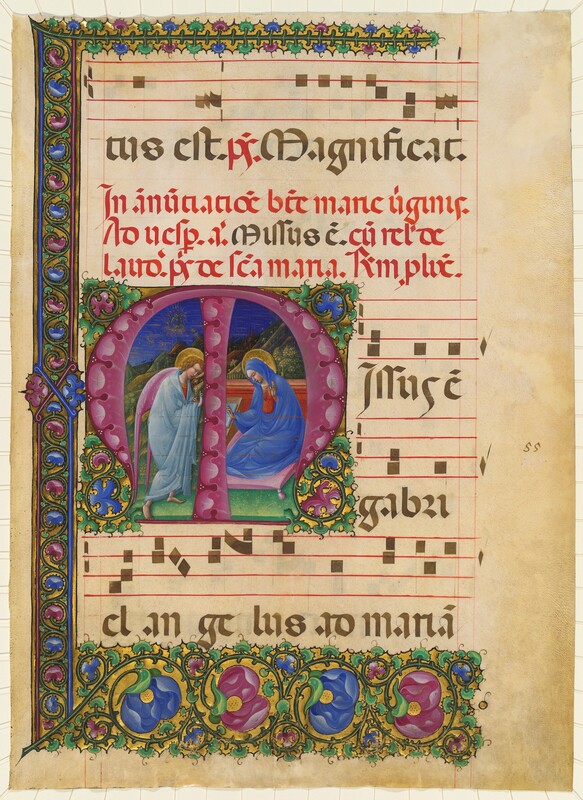 tus est. p̄s. Magnificat.
In ānūtiatiōē btē marie ūginis.
Ad uesp. a͂. Missus ē. cū rel' de
laud'. p̄s de scā maria. R͂m. plixē.
Missus ē
gabri
el an ge lus ad mariā
55